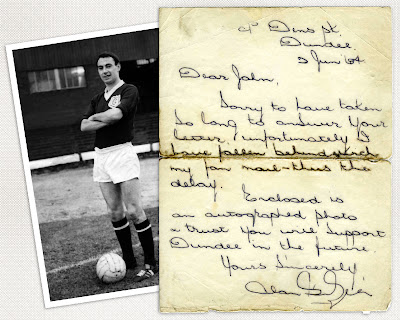 Dens Pk.
Dundee.
9 Jun '64
Dear John,
Sorry to have taken
so long to answer your
letter, unfortunately I
have fallen behind with
my fan mail - thus the
delay.
Enclosed is
an autographed photo
& trust you will support
Dundee in the future.
Yours Sincerely
Alan